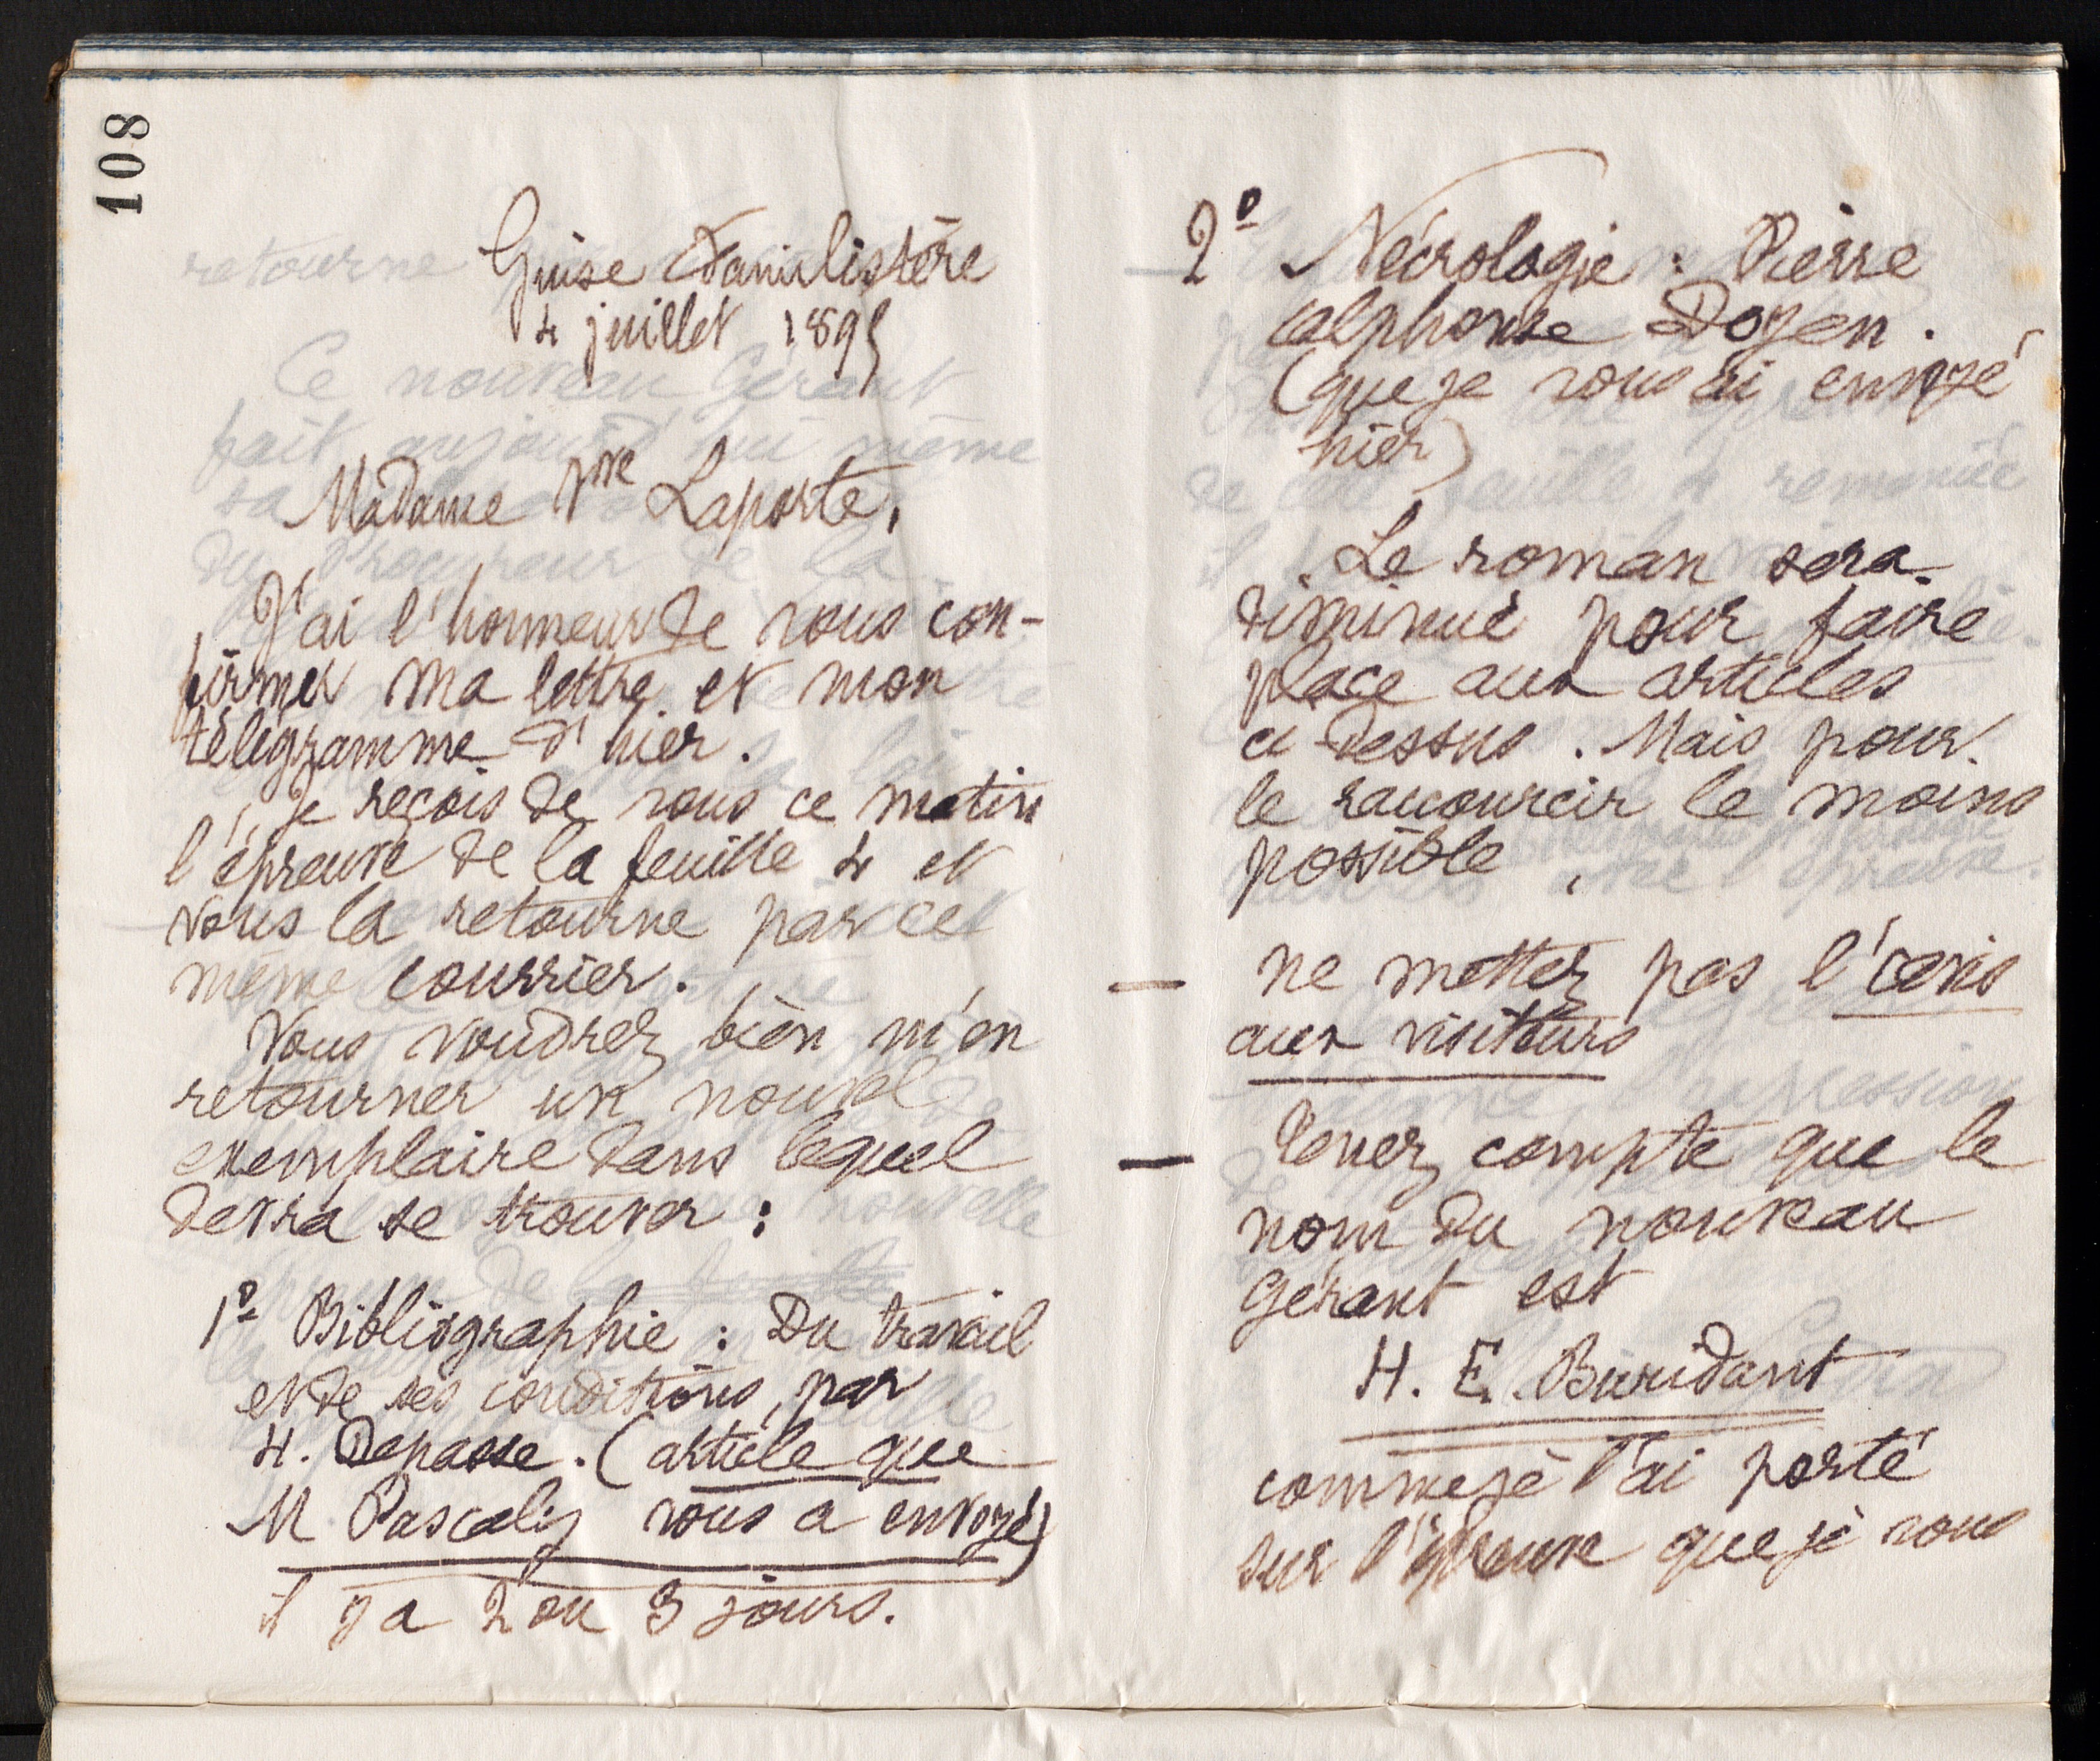 108
Guise Familistère
4 juillet 1895
Madame Vve Laporte,
J'ai l'honneur de vous con-
firmer ma lettre et mon
télégramme d'hier.
Je reçois de vous ce matin
l'épreuve de la feuille 4 et
vous la retourne par ce
même courrier.
Vous voudrez bien m'en
retourner un nouvel
exemplaire dans lequel
devra se trouver :
1º Bibliographie : Du travail
et de ses conditions, par
H. Depasse. (article que
M Pascaly vous a envoyé)
il y a 2 ou 3 jours.
2º Nécrologie : Pierre
Alphonse Doyen.
(que je vous ai envoyé
hier)
Le roman sera
diminué pour faire
place aux articles
ci-dessus. Mais pour
le raccourcir le moins
possible,
— ne mettez pas l'avis
aux visiteurs
— Tenez compte que le
nom du nouveau
Gérant est
H. E. Buridant
comme je l'ai porté
sur l'épreuve que je vous
retourne
Ce nouveau Gérant
fait aujourd'hui même
du Procureur de la